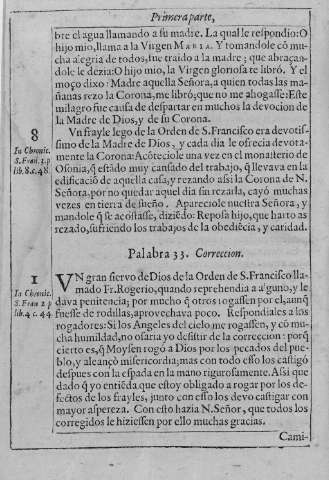 Primera parte,
bre el agua llamando a su madre. La qual le respondio: O
hijo mio, llama a la Virgen MARIA. Y tomandole cõ mu-
cha alegria de todos, fue traido a la madre; que abraçan-
dole le dezia: O hijo mio, la Virgen gloriosa te librò. Y el
moço dixo: Madre aquella Señora, a quien todas las ma-
ñanas rezo la Corona, me librò; que no me ahogasse: Este
milagro fue causa de despartar en muchos la devocion de
la Madre de Dios, y de su Corona.
8
In Chronic.
S. Fran. 2. p
lib. 8. c. 48.
Un frayle lego de la Orden de S. Francisco era devotis-
simo de la Madre de Dios, y cada dia le ofrecia devota-
mente la Corona: Acõteciole una vez en el monasterio de
Osonia, q̃ estãdo muy cansado del trabajo, q̃ llevava en la
edificaciõ de aquella casa, y rezando assi la Corona de N.
Señora, por no quedar aquel dia sin rezarla, cayó muchas
vezes en tierra de sueño. Apareciole nuestra Señora, y
mandole q̃ se acostasse, diziẽdo: Reposa hijo, que harto as
rezado, sufriendo los trabajos de la obediẽcia, y caridad.
Palabra 33. Correccion.
1
In Chronic.
S. Fran 2 p
lib. 4 c. 44
UN gran siervo de Dios de la Orden de S. Francisco lla-
mado Fr. Rogerio, quando reprehendia a alguno, y le
dava penitencia; por mucho q̃ otros rogassen por el, aunq̃
fuesse de rodillas, aprovechava poco. Respondiales a los
rogadores: Si los Angeles del cielo me rogassen, y cõ mu-
cha humildad, no osaria yo desistir de la correccion: porq̃
cierto es, q̃ Moysen rogò a Dios por los pecados del pue-
blo, y alcançò misericordia; mas con todo esso los castigò
despues con la espada en la mano rigurosamente. Assi que
dado q̃ yo entiẽda que estoy obligado a rogar por los de-
fectos de los frayles, junto con esso los devo castigar con
mayor aspereza. Con esto hazia N. Señor, que todos los
corregidos le hiziessen por ello muchas gracias.
Cami-